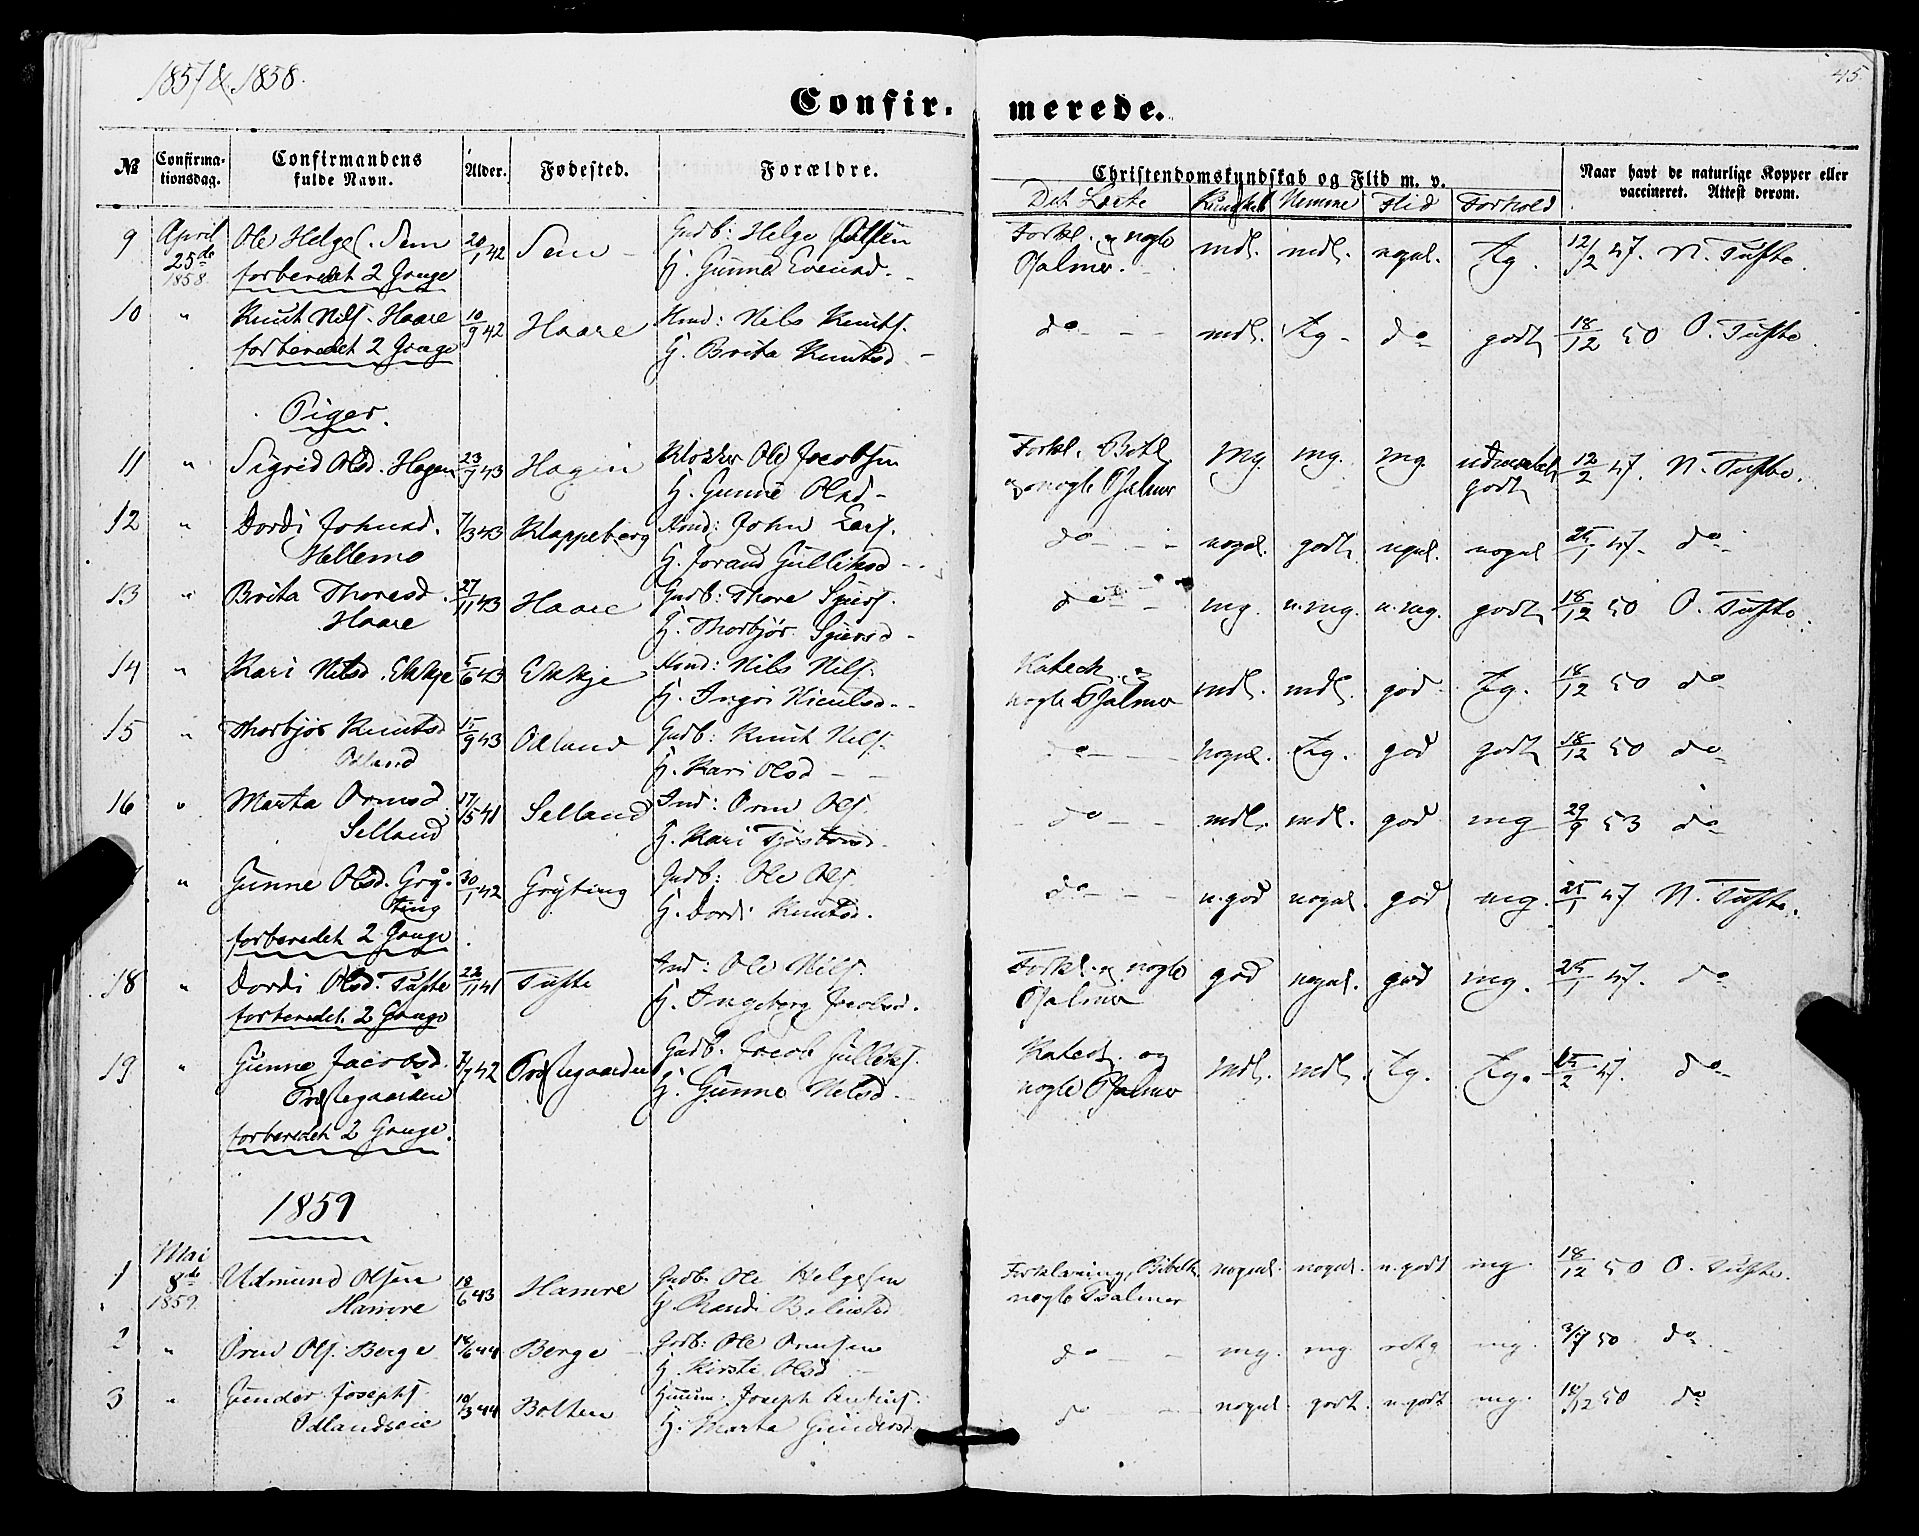 1857 & 1858.
45.
Confirmerede.
№ Confirmationsdag. Confirmandens fulde Navn. Alder. Fødested. Forældre. Christendomskundskab og Flid m. v. Naar havt de naturlige Kopper eller vaccineret. Attest derom.
Det Læste Kundskab Nemme Flid Forhold
9 April 25de 1858 Ole Helges. Sem 20/1 42 Sem Gadb: Helge Olsen Forkl. og nogle mdl. mdl. nogul. Tg. 12/2 47. N. Tufte.
forberedet 2 Gange H. Gunne Evensd. Psalmer.
10 " Knut Nils. Haare 10/9 42 Haare Hmd: Nils Knuts. do mdl. Tg do godt 18/12 50 O. Tufte.
forberedet 2 Gange H. Brita Knutsd
Piger.
11 " Sigrid Olsd. Hagen 23/9 43 Hagen Klokker Ole Jacobsen Forkl. Bibl mg. mg. mg. udmærket 12/2 47 N. Tufte.
H. Gunne Olsd og nogle Psalmer godt
12 " Dordi Johnsd. 7/3 43 Klappeberg Hmd: John Lars. do nogul. godt nogul. nogul 25/1 47. do
Mellemo H. Jorand Gulliksd
13 " Brita Thoresd. 27/11 43 Haare Gadb: Thore Sjurs. do mg. n.mg. n.mg. godt 18/12 50 O. Tufte.
Haare H. Thorbjør Sjursd
14 " Kari Nilsd. Ekkje 5/6 43 Ekkje Hmd: Nils Nils. Katech. og mdl. mdl. god Tg. 18/12 50 do
H. Ingri Niculsd. nogle Psalmer
15 " Thorbjør Knutsd 15/9 43 Odland Gadb: Knut Nils. do nogul. Tg. god godt 18/12 50 do
Odland H. Kari Olsd
16 " Marta Ormsd. 17/5 41 Selland Ind: Orm Ols. do mdl. mdl. god mg 29/9 53 do
Selland H. Kari Tjøstensd.
" Gunne Olsd. Grø- 30/1 42 Grøting Gadb: Ole Ols. do n.god nogul. god mg. 25/1 47 N. Tufte.
ting H. Dordi Knutsd.
forberedet 2 Gange
18 " Dordi Olsd. Tufte 22/11 41 Tufte Ind: Ole Nils. Forkl. og nogle god nogul. god mg. 25/1 47. do
forberedet 2 Gange H. Ingeborg Jacobsd. Psalmer
19 " Gunne Jacobsd. 7/7 42 Præstegaarden Gadb. Jacob Gulliks. Katech. og mdl. mdl. Tg. Tg. 25/2 47. do
Præstegaarden H. Gunne Nilsd nogle Psalmer
forberedet 2 Gange.
1859
1 Mai 8de 1859. Udmund Olsen 18/6 43 Hamre Gadb. Ole Helgesen Forklaring, Bibelh. nogul. nogul. n.godt mg. 18/12 50 O. Tufte.
Hamre H. Randi nogle Psalmer
2 " Orm Ols. Berge 18/6 44 Berge Gadb: Ole Ormsen do mg. mg. mg. 3/7 50 do
H. Kirsti Olsd
3 " Gunder Josephs. 10/3 44 Bolten Huusm: Joseph do nogul. godt. n.godt mg. 18/12 50 do
Odlandseie H. Marta Gundersd.